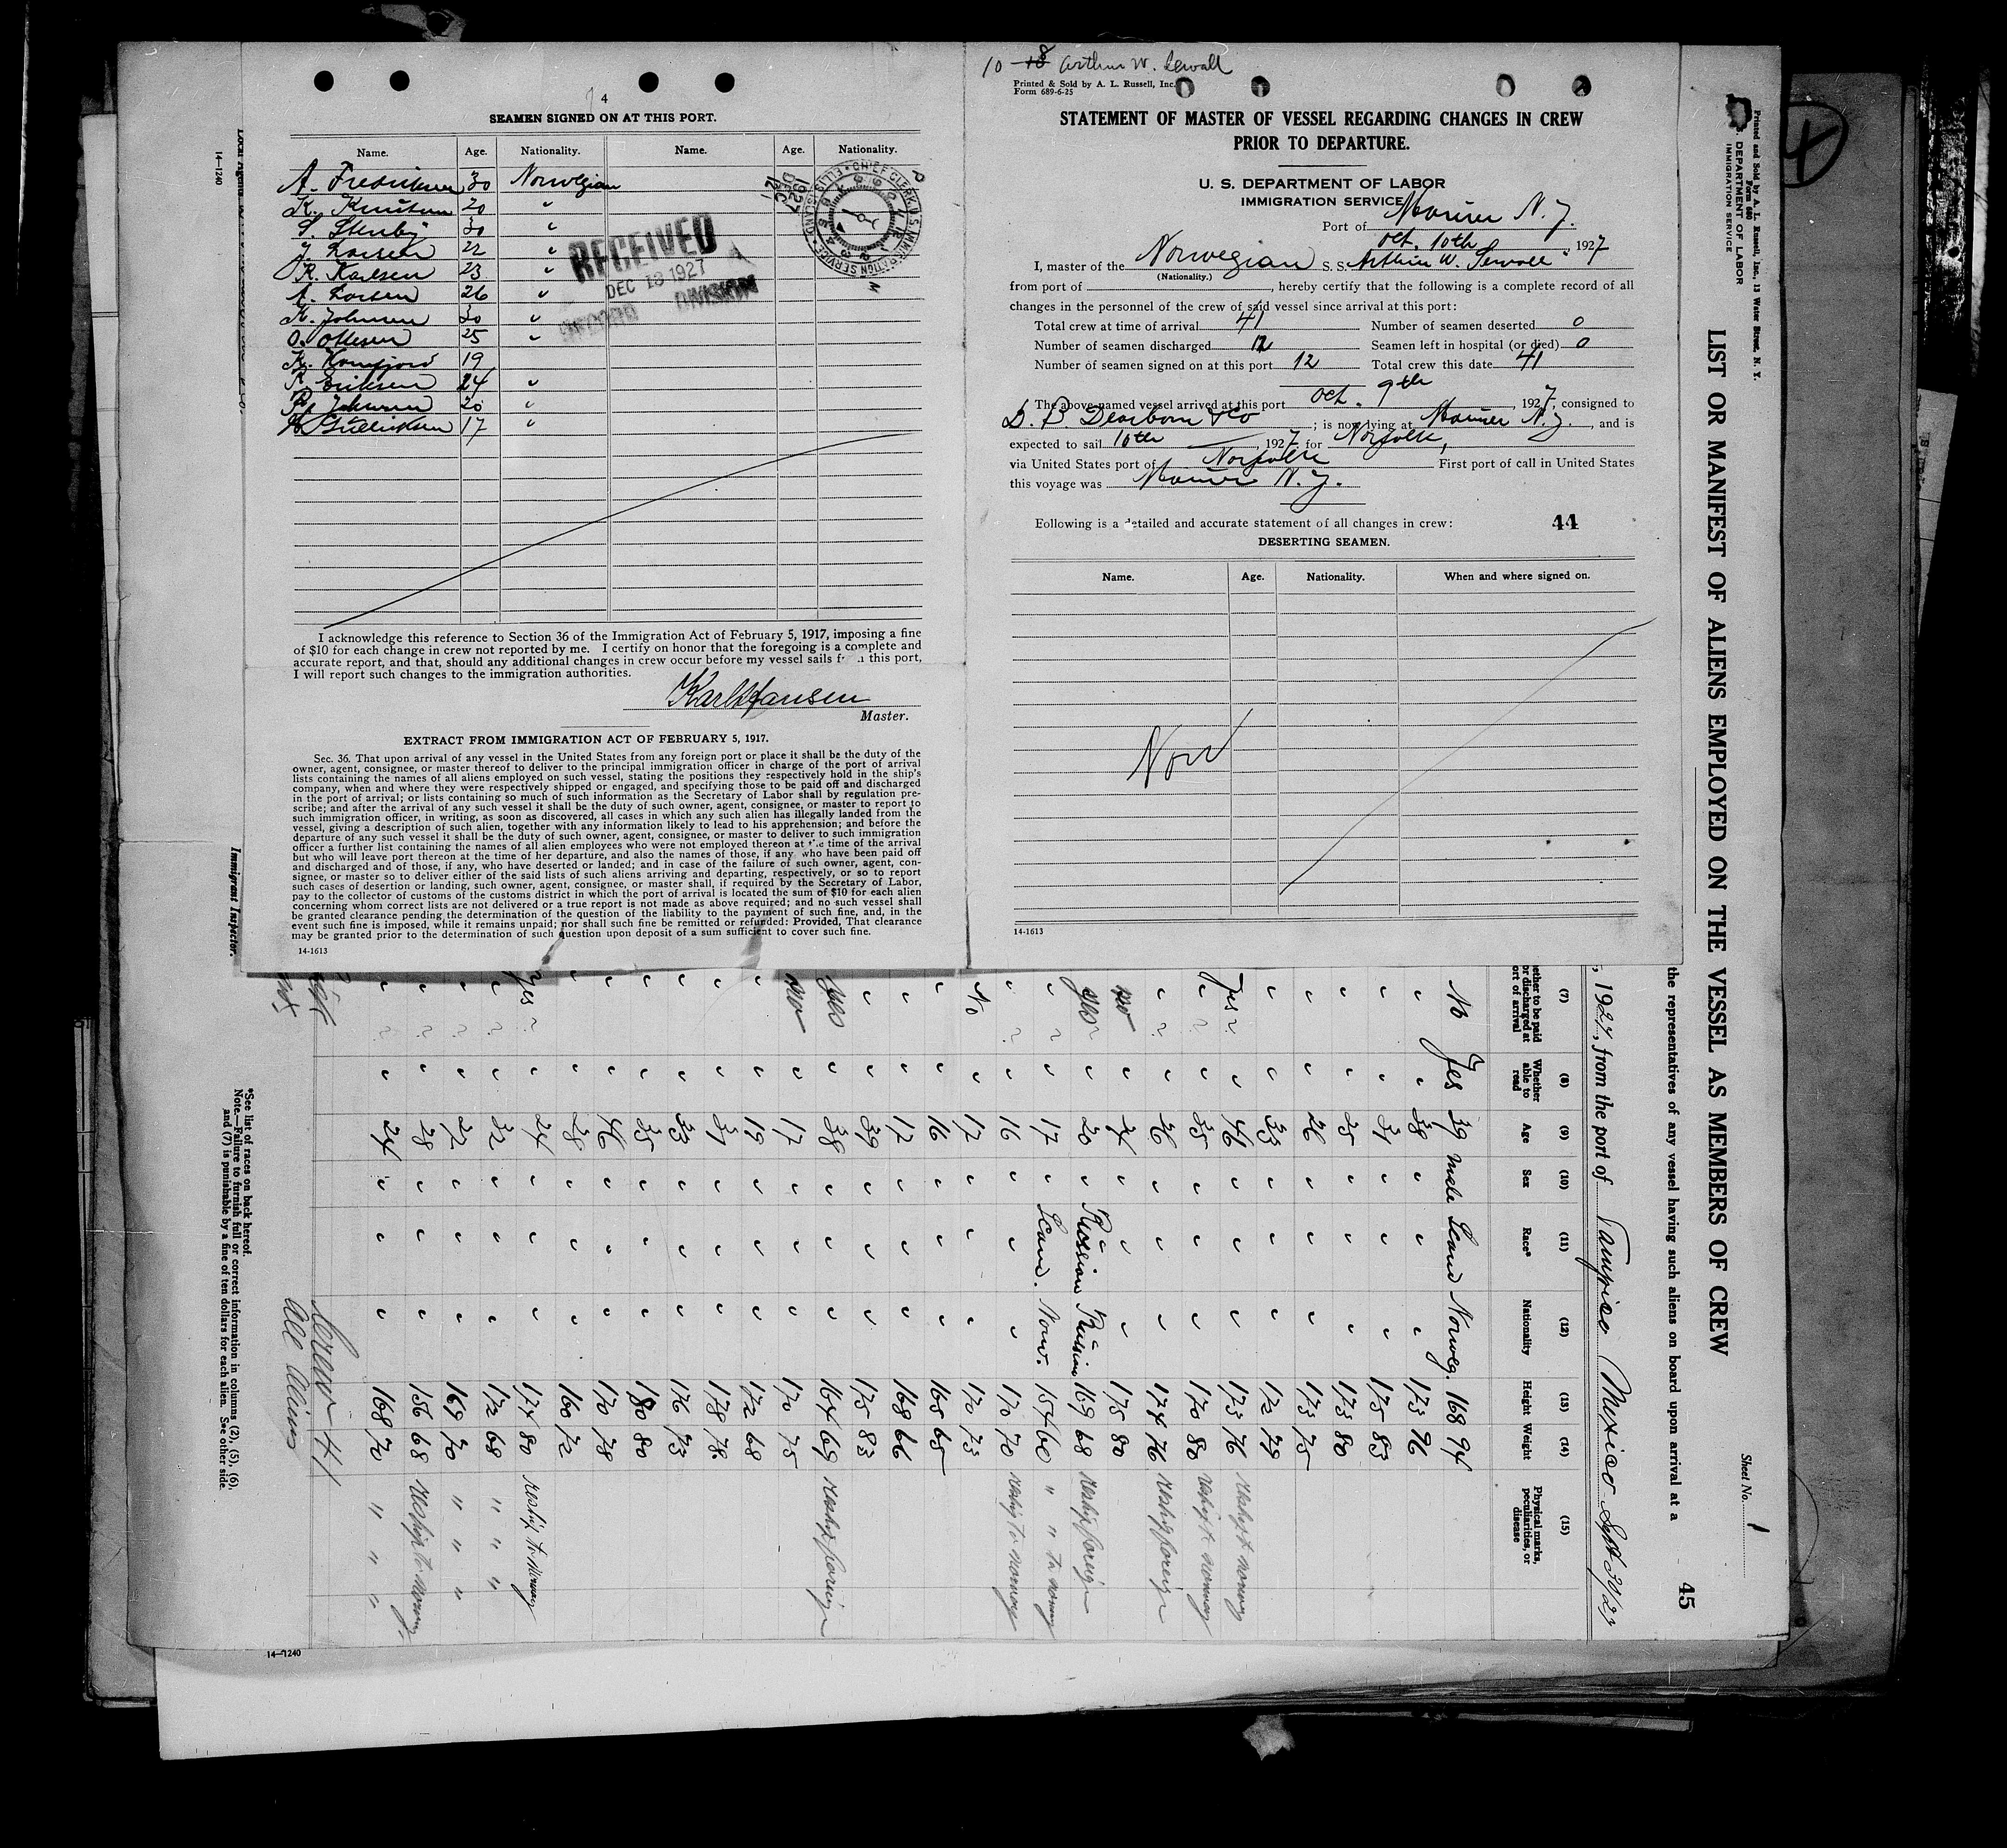 4
SEAMEN SIGNED ON AT THIS PORT.
Name. Age. Nationality. Name. Age. Nationality.
A. Fredriksen 30 Norwegian
K. Knutsen 20 "
S. Stenby 30 "
J. Larsen 22 "
R. Karlsen 23 "
A. Larsen 26 "
K. Johnsen 30 "
O. Ottesen 25 "
K. 19
R. Eriksen 24 "
Johnsen 20 "
17 "
RECEIVED
DEC 13 1927
RECORD DIVISION
CHIEF CLERK, U.S. IMMIGRATION SERVICE ELLIS ISLAND
1927 DEC 12
I acknowledge this reference to Section 36 of the Immigration Act of February 5, 1917, imposing a fine
of $10 for each change in crew not reported by me. I certify on honor that the foregoing is a complete and
accurate report, and that, should any additional changes in crew occur before my vessel sails this port,
I will report such changes to the immigration authorities.
Karl Hansen
Master.
EXTRACT FROM IMMIGRATION ACT OF FEBRUARY 5, 1917.
Sec. 36. That upon arrival of any vessel in the United States from any foreign port or place it shall be the duty of the
owner, agent, consignee, or master thereof to deliver to the principal immigration officer in charge of the port of arrival
lists containing the names of all aliens employed on such vessel, stating the positions they respectively hold in the ship's
company, when and where they were respectively shipped or engaged, and specifying those to be paid off and discharged
in the port of arrival; or lists containing so much of such information as the Secretary of Labor shall by regulation pre-
scribe; and after the arrival of any such vessel it shall be the duty of such owner, agent, consignee, or master to report to
such immigration officer, in writing, as soon as discovered, all cases in which any such alien has illegally landed from the
vessel, giving a description of such alien, together with any information likely to lead to his apprehension; and before the
departure of any such vessel it shall be the duty of such owner, agent, consignee, or master to deliver to such immigration
officer a further list containing the names of all alien employees who were not employed thereon at the time of the arrival
but who will leave port thereon at the time of her departure, and also the names of those, if any who have been paid off
and discharged and of those, if any, who have deserted or landed; and in case of the failure of such owner, agent, con-
signee, or master so to deliver either of the said lists of such aliens arriving and departing, respectively, or so to report
such cases of desertion or landing, such owner, agent, consignee, or master shall, if required by the Secretary of Labor,
pay to the collector of customs of the customs district in which the port of arrival is located the sum of $10 for each alien
concerning whom correct lists are not delivered or a true report is not made as above required; and no such vessel shall
be granted clearance pending the determination of the question of the liability to the payment of such fine, and, in the
event such fine is imposed, while it remains unpaid; nor shall such fine be remitted or refunded: Provided, That clearance
may be granted prior to the determination of such question upon deposit of a sum sufficient to cover such fine.
14-1613
10 Arthur W. Sewall
Printed & Sold by A. L. Russell, Inc.
Form 689-6-25
STATEMENT OF MASTER OF VESSEL REGARDING CHANGES IN CREW
PRIOR TO DEPARTURE.
U. S. DEPARTMENT OF LABOR
IMMIGRATION SERVICE
Port of Maurer N. J.
Oct. 10th, 1927
I, master of the Norwegian S. S. Arthur W. Sewall
(Nationality.)
from port of , hereby certify that the following is a complete record of all
changes in the personnel of the crew of said vessel since arrival at this port:
Total crew at time of arrival 41 Number of seamen deserted 0
Number of seamen discharged 12 Seamen left in hospital (or died) 0
Number of seamen signed on at this port 12 Total crew this date 41
The above-named vessel arrived at this port Oct. 9th, 1927, consigned to
D. B. Dearborn & Co ; is now lying at Maurer N. J., and is
expected to sail 10th, 1927 for Norfolk,
via United States port of Norfolk First port of call in United States
this voyage was Maurer N. J.
Following is a detailed and accurate statement of all changes in crew: 44
DESERTING SEAMEN.
Name. Age. Nationality. When and where signed on.
14-1613
Printed and Sold by A. L. Russell, Inc., 13 Water Street, N. Y.
Form 680
U. S. DEPARTMENT OF LABOR
IMMIGRATION SERVICE
Sheet No. 1
LIST OR MANIFEST OF ALIENS EMPLOYED ON THE VESSEL AS MEMBERS OF CREW
45
the representatives of any vessel having such aliens on board upon arrival at a
, 1927, from the port of Tampico Mexico Sept 30/27
(7) (8) (9) (10) (11) (12) (13) (14) (15)
Whether able to read Age Sex Race* Nationality Height Weight Physical marks, peculiarities, or disease
No Yes 39 Male Scand Norweg. 168 94
" " 38 " " " 173 96
" " 34 " " " 175 83
" " 25 " " " 173 80
" " 26 " " " 173 75
" " 33 " " " 172 79
Yes " 46 " " " 173 76 reship to norway
" " 35 " " " 170 80 reship to norway
" " 26 " " " 174 76 reship foreign
no " 34 " " " 175 80
yes " 20 " Russian Russian 169 68 reship foreign
" " 17 " Scand. Norw. 154 60 " " to norway
" " 16 " " " 170 70 reship to norway
No " 17 " " " 170 73
" " 16 " " " 165 65
" " 17 " " " 168 66
" " 39 " " " 175 83
yes " 38 " " " 164 69 reship foreign
no " 17 " " " 170 75
" " 19 " " " 172 68
" " 37 " " " 178 78
" " 33 " " " 176 73
" " 35 " " " 180 80
" " 46 " " " 170 78
" " 28 " " " 160 72
Yes " 24 " " " 174 80 reship to norway
" " 32 " " " 172 68 " " "
" " 22 " " " 169 70 " " "
" " 28 " " " 156 68 reship to norway
" " 24 " " " 168 70 " " "
Crew 41
all aliens
*See list of races on back hereof.
Note.—Failure to furnish full or correct information in columns (2), (5), (6),
and (7) is punishable by a fine of ten dollars for each alien. See other side.
Immigrant Inspector.
14-1240
14-1240